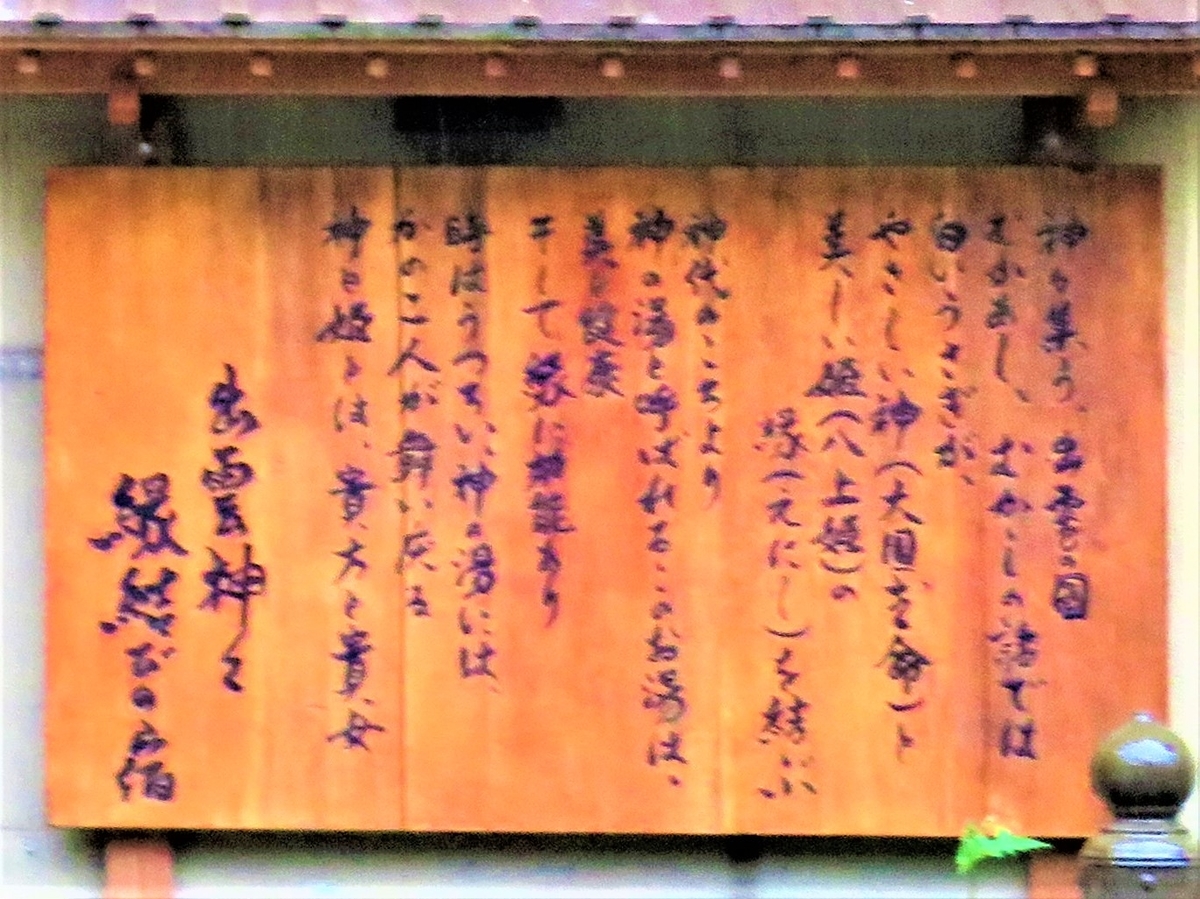 神々集う、出雲の国
むかあし、むかしの話では
白いうさぎが、
やさしい神（大国主命）と
美しい姫（八上姫）の
縁（えにし）を結ぶ
神代のころより
神の湯と呼ばれるこのお湯は、
美と健康
そして縁に神能あり
時はうつろい神の湯には、
かの二人が舞い戻る
神と姫とは、貴方と貴女
出雲神々
縁結びの宿